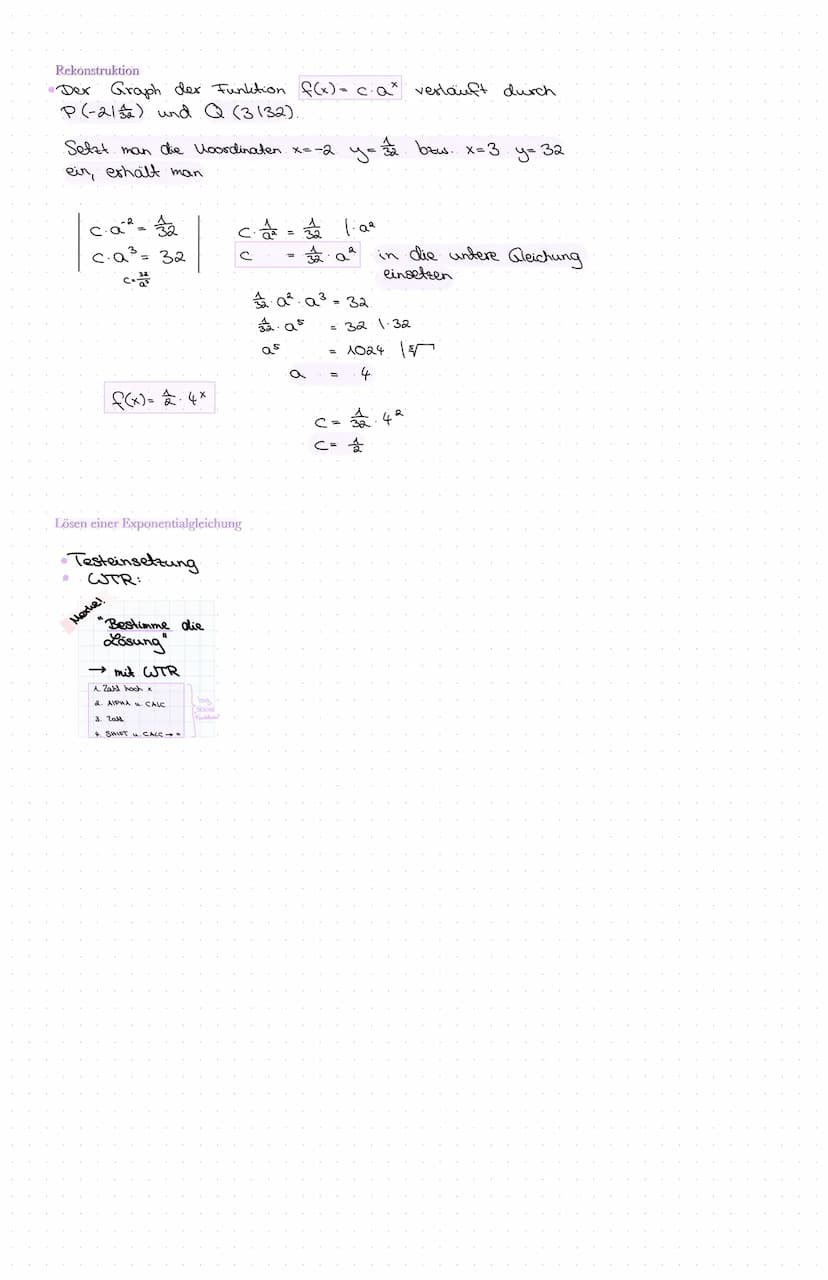 Rekonstruktion
• Der Graph der Funktion f(x) = c · aˣ verläuft durch
P(-2|1/32) und Q(3|32).
Setzt man die Koordinaten x=-2 y=1/32 bzw. x=3 y=32
ein, erhält man
c · a⁻² = 1/32
c · a³ = 32
c = 32/a³
c · 1/a² = 1/32 | · a²
c = 1/32 · a² in die untere Gleichung
einsetzen
1/32 · a² · a³ = 32
1/32 · a⁵ = 32 | · 32
a⁵ = 1024 | ⁵√
a = 4
f(x) = 1/2 · 4ˣ
c = 1/32 · 4²
c = 1/2
Lösen einer Exponentialgleichung
• Testeinsetzung
• WTR:
Merke!
"Bestimme die
Lösung"
→ mit WTR
1. Zahl hoch x
2. ALPHA u. CALC
3. Zahl
4. SHIFT u. CALC → =